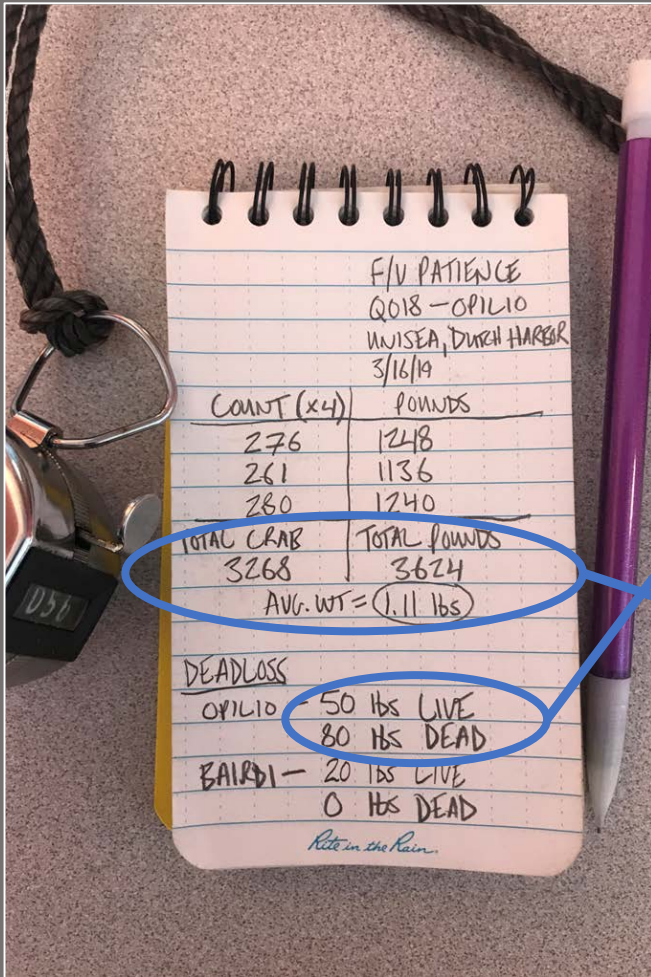 F/V PATIENCE
QO18 - OPILIO
UNISEA, DUTCH HARBOR
3/16/19
COUNT (x4) POUNDS
276 1248
261 1136
280 1240
TOTAL CRAB TOTAL POUNDS
3268 3624
AVG. WT = 1.11 lbs
DEADLOSS
OPILIO - 50 lbs LIVE
80 lbs DEAD
BAIRDI - 20 lbs LIVE
0 lbs DEAD
Rite in the Rain
056